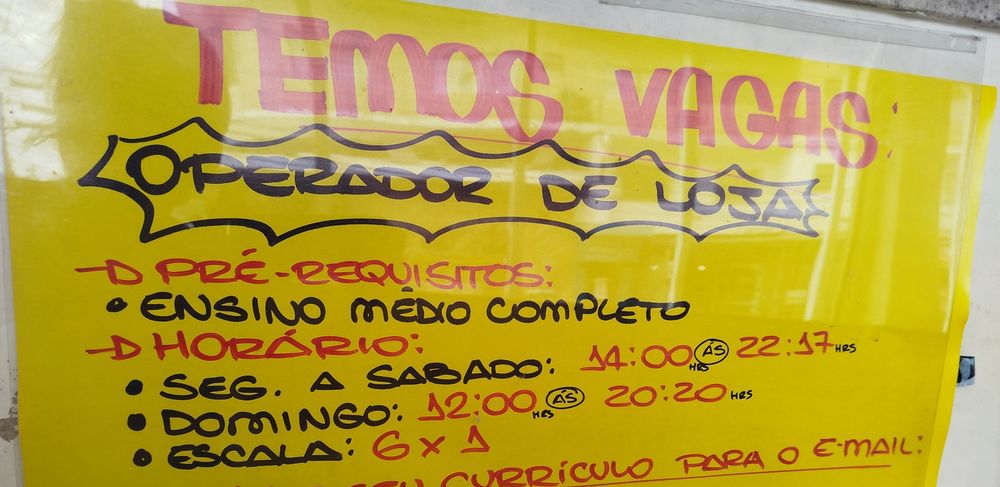 TEMOS VAGAS:
OPERADOR DE LOJA
PRÉ-REQUISITOS:
• ENSINO MÉDIO COMPLETO
HORÁRIO:
• SEG. A SABADO: 14:00HRS ÁS 22:17HRS
• DOMINGO: 12:00HRS ÁS 20:20HRS
• ESCALA: 6X1
CURRÍCULO PARA O E-MAIL: